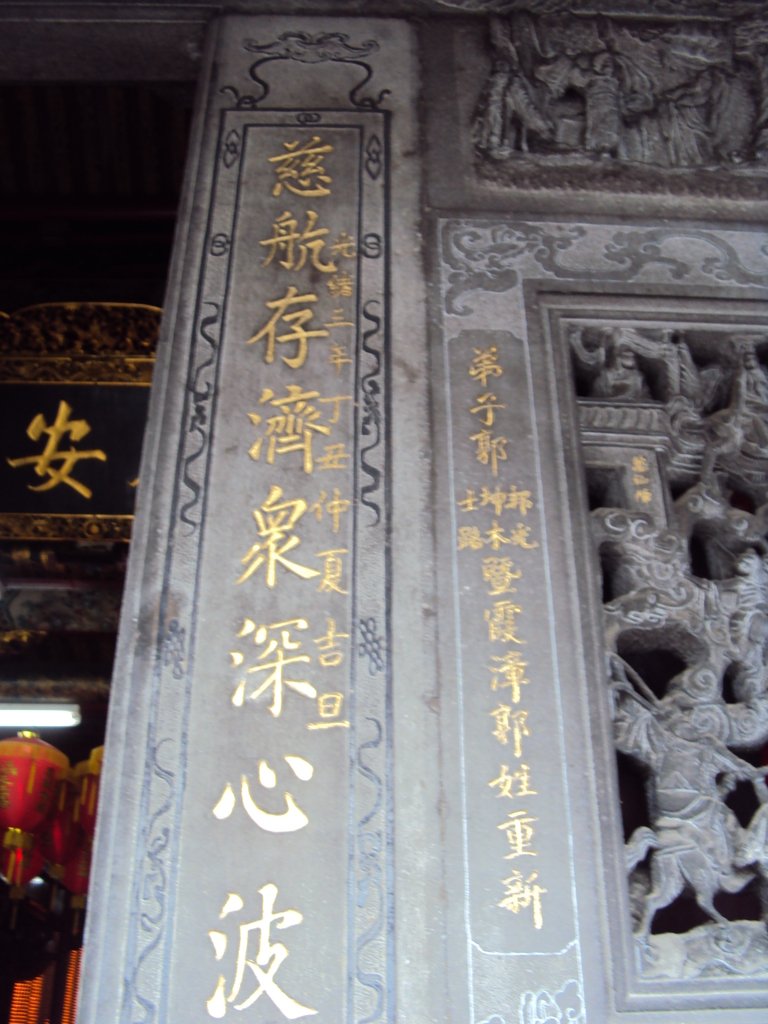 慈航存濟衆深心波
光緒三年丁丑仲夏吉旦
弟子郭
坤木
士路
暨霞漳郭姓重新
安